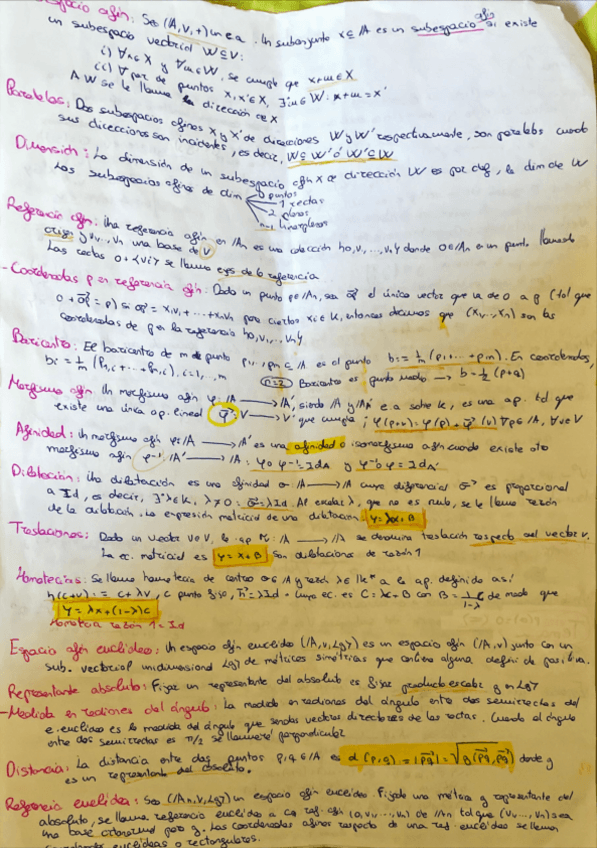 Espacio afín: Sea (A,V,+) un e.a. Un subconjunto X⊆A es un subespacio afín si existe
un subespacio vectorial W⊆V:
i) ∀x∈X y ∀u∈W, se cumple que x+u∈X
ii) ∀ par de puntos x,x'∈X, ∃!u∈W: x+u=x'
A W se le llama la dirección de X
Paralelas: Dos subespacios afines X y X' de direcciones W y W' respectivamente, son paralelos cuando
sus direcciones son incidentes, es decir, W⊆W' ó W'⊆W
Dimensión: La dimensión de un subespacio afín X de dirección W es por def, la dim de W
Los subespacios afines de dim
0 puntos
1 rectas
2 planos
n-1 hiperplanos
Referencia afín: Una referencia afín en An es una colección {0,v1,...,vn} donde 0∈A es un punto llamado
origen y v1,...,vn una base de V
Las rectas 0+<vi> se llaman ejes de la referencia
- Coordenadas p en referencia afín: Dado un punto p∈An, sea 0p el único vector que va de 0 a p (tal que
0+0p=p) si 0p=x1v1+...+xnvn para ciertos xi∈k, entonces decimos que (x1,...,xn) son las
coordenadas de p en la referencia {0,v1,...,vn}
Baricentro: El baricentro de m puntos p1,...,pm∈A es el punto b:=1/m(p1+...+pm). En coordenadas,
bi=1/m(p1,i+...+pm,i), i=1,...,m
n=2 Baricentro es punto medio → b=1/2(p+q)
Morfismo afín: Un morfismo afín φ:A → A', siendo A y A' e.a sobre k, es una ap. tal que
existe una única ap. lineal φ:V → V' que cumple; φ(p+v)=φ(p)+φ(v) ∀p∈A, ∀v∈V
Afinidad: Un morfismo afín φ:A → A' es una afinidad o isomorfismo afín cuando existe otro
morfismo afín φ⁻¹:A' → A: φ∘φ⁻¹=IdA' y φ⁻¹∘φ=IdA
Dilatación: Una dilatación es una afinidad σ:A → A cuya diferencial σ es proporcional
a Id, es decir, ∃λ∈k, λ≠0: σ=λId. Al escalar λ, que no es nulo, se le llama razón
de la dilatación. La expresión matricial de una dilatación Y=λX+B
Traslaciones: Dado un vector v∈V, la ap: A → A se denomina traslación respecto del vector v.
La ec. matricial es Y=X+B Son dilataciones de razón 1
Homotecias: Se llama homotecia de centro c∈A y razón λ∈k* a la ap. definida así
h(c+v):=c+λv, c punto fijo, h=λId - cuya ec. es C=λC+B con de modo que
Y=λx+(1-λ)C
Homotecia razón 1=Id
Espacio afín euclídeo: Un espacio afín euclídeo (A,V,<g>) es un espacio afín (A,V) junto con un
sub. vectorial unidimensional <g> de métricas simétricas que contiene alguna defini. de positiva.
Representante absoluto: Fijar un representante del absoluto es fijar producto escalar g en <g>
- Medida en radianes del ángulo: La medida en radianes del ángulo entre dos semirectas del
e.euclídeo es la medida del ángulo que sendos vectores directores de las rectas. Cuando el ángulo
entre dos semirectas es π/2 se llamaré perpendicular
Distancia: La distancia entre dos puntos p,q∈A es d(p,q)=|pq|=√g(pq,pq) donde g
es un representante del absoluto.
Referencia euclídea: Sea (An,V,<g>) un espacio afín euclídeo. Fijado una métrica g representante del
absoluto, se llama referencia euclídea a ref. afín (0,v1,...,vn) de An tal que (v1,...,vn) sea
una base ortonormal para g. Las coordenadas afines respecto de una ref. euclídea se llaman
coordenadas euclídeas o rectangulares.